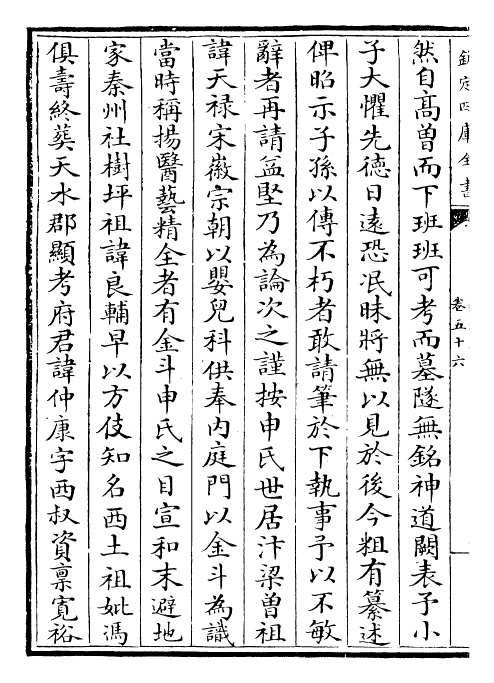 欽定四庫全書
卷五十六
然自高曽而下班班可考而墓隧無銘神道闕表予小
子大懼先德日逺恐冺昧將無以見於後今粗有纂述
俾昭示子孫以傳不朽者敢請筆於下執事予以不敏
辭者再請益堅乃為論次之謹按申氏世居汴梁曽祖
諱天禄宋徽宗朝以嬰兒科供奉内庭門以金斗為識
當時稱揚醫藝精全者有金斗申氏之目宣和末避地
家秦州社樹坪祖諱良輔早以方伎知名西土祖妣馮
俱壽終葬天水郡顯考府君諱仲康字西叔資禀寛裕